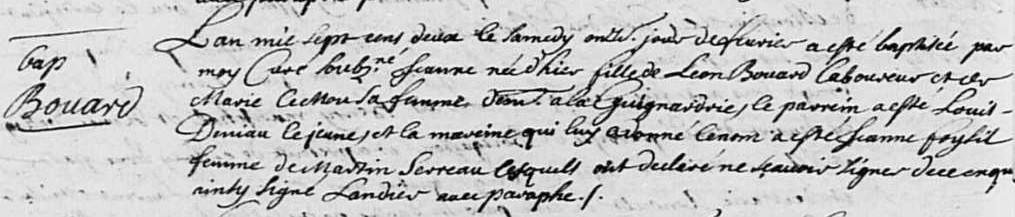 bap
Bouard
Lan mil sept cens deux le samedy onze jour de feurier a esté baptisée par
moy Curé soubz.né Jeanne née d'hier fille de Leon Bouard laboureur et de
Marie sa femme, dem.t a la Guignardrie, le parrein a esté Louis
Deniau le jeune, et la mareine qui luy a donné le nom a esté Jeanne
femme de Martin Serreau lesquels ont declaré ne scauoir signer de ce enqu
signé Landier auec paraphe ./.